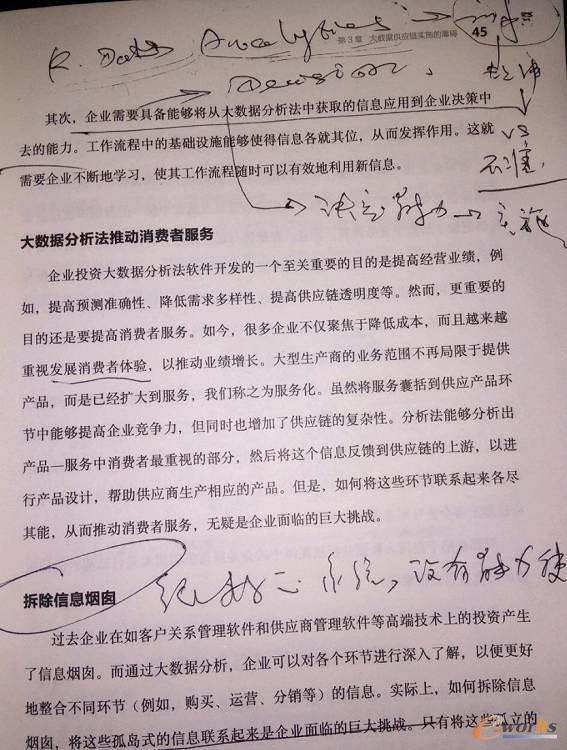 Analytics
第3章 大数据供应链实施的障碍
45
Decision
其次，企业需要具备能够将从大数据分析法中获取的信息应用到企业决策中
去的能力。工作流程中的基础设施能够使得信息各就其位，从而发挥作用。这就
VS
需要企业不断地学习，使其工作流程随时可以有效地利用新信息。
大数据分析法推动消费者服务
企业投资大数据分析法软件开发的一个至关重要的目的是提高经营业绩，例
如，提高预测准确性、降低需求多样性、提高供应链透明度等。然而，更重要的
目的还是要提高消费者服务。如今，很多企业不仅聚焦于降低成本，而且越来越
重视发展消费者体验，以推动业绩增长。大型生产商的业务范围不再局限于提供
产品，而是已经扩大到服务，我们称之为服务化。虽然将服务囊括到供应产品环
节中能够提高企业竞争力，但同时也增加了供应链的复杂性。分析法能够分析出
产品—服务中消费者最重视的部分，然后将这个信息反馈到供应链的上游，以进
行产品设计，帮助供应商生产相应的产品。但是，如何将这些环节联系起来各尽
其能，从而推动消费者服务，无疑是企业面临的巨大挑战。
系统，没有能力使
拆除信息烟囱
过去企业在如客户关系管理软件和供应商管理软件等高端技术上的投资产生
了信息烟囱。而通过大数据分析，企业可以对各个环节进行深入了解，以便更好
地整合不同环节（例如，购买、运营、分销等）的信息。实际上，如何拆除信息
烟囱，将这些孤岛式的信息联系起来是企业面临的巨大挑战。只有将这些孤立的
e-works